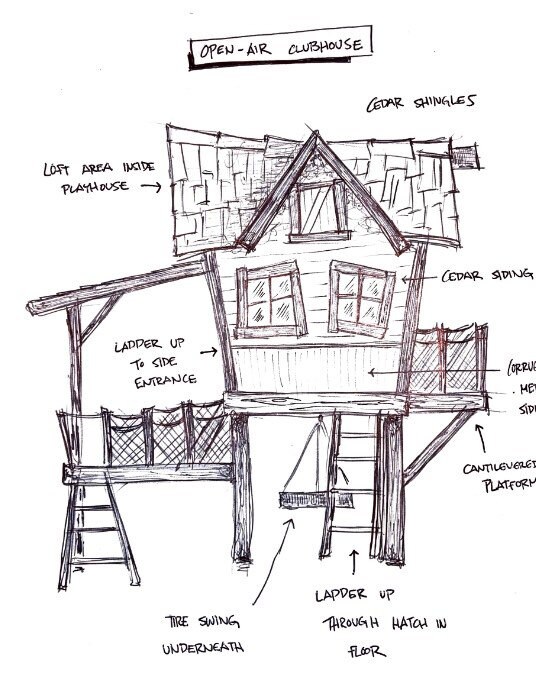 OPEN-AIR CLUBHOUSE
CEDAR SHINGLES
LOFT AREA INSIDE
PLAYHOUSE
CEDAR SIDING
LADDER UP
TO SIDE
ENTRANCE
CANTILEVERED
PLATFORM
TIRE SWING
UNDERNEATH
LADDER UP
THROUGH HATCH IN
FLOOR